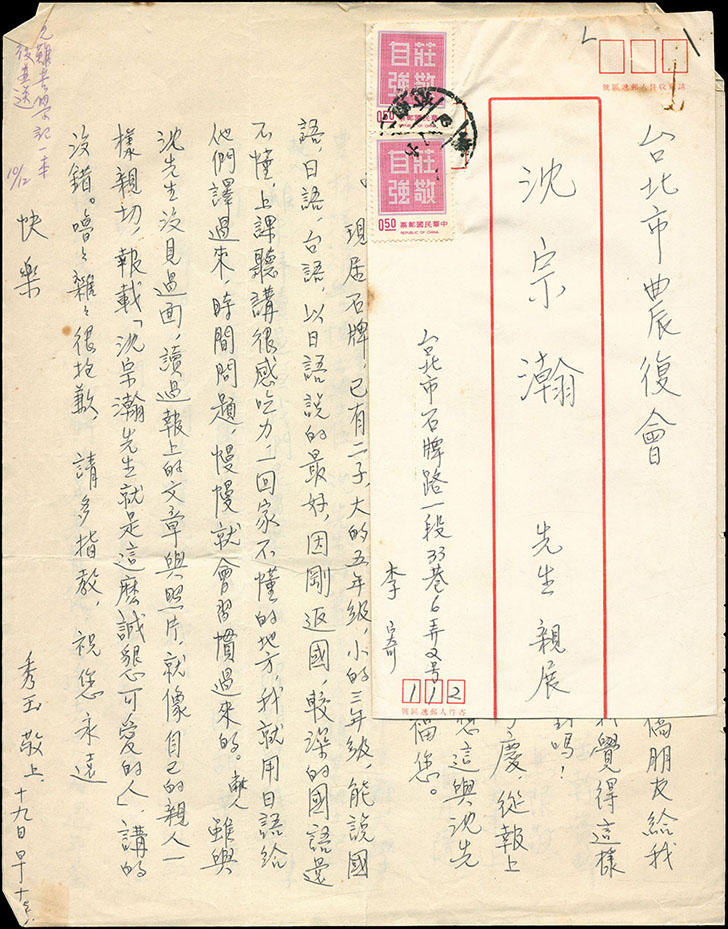 請寫收件人郵遞區號
台北市農復會
沈宗瀚 先生 親展
台北市石牌路一段33巷6弄2号
李寄
112
寄件人郵遞區號
莊敬自強
0.50
莊敬自強
中華民國郵票
REPUBLIC OF CHINA
0.50
僑朋友給我
我覺得這樣
嗎!
慶,從報上
這與沈先
福您。
現居石牌,已有二子,大的五年級,小的三年級,能說國
語,日語,台語,以日語說的最好,因剛返國,較深的國語還
不懂,上課聽講很感吃力,一回家不懂的地方,我就用日語給
他們譯過來,時間問題,慢慢就會習慣過來的。 雖與
沈先生沒見過面,讀過報上的文章與照片,就像自己的親人一
樣親切,報載「沈宗瀚先生就是這麽誠懇可愛的人」,講的
沒錯。嚕嚕雜雜很抱歉,請多指教,祝您永遠
快樂
秀玉敬上 十九日早十時
記一本
後直送
10/12